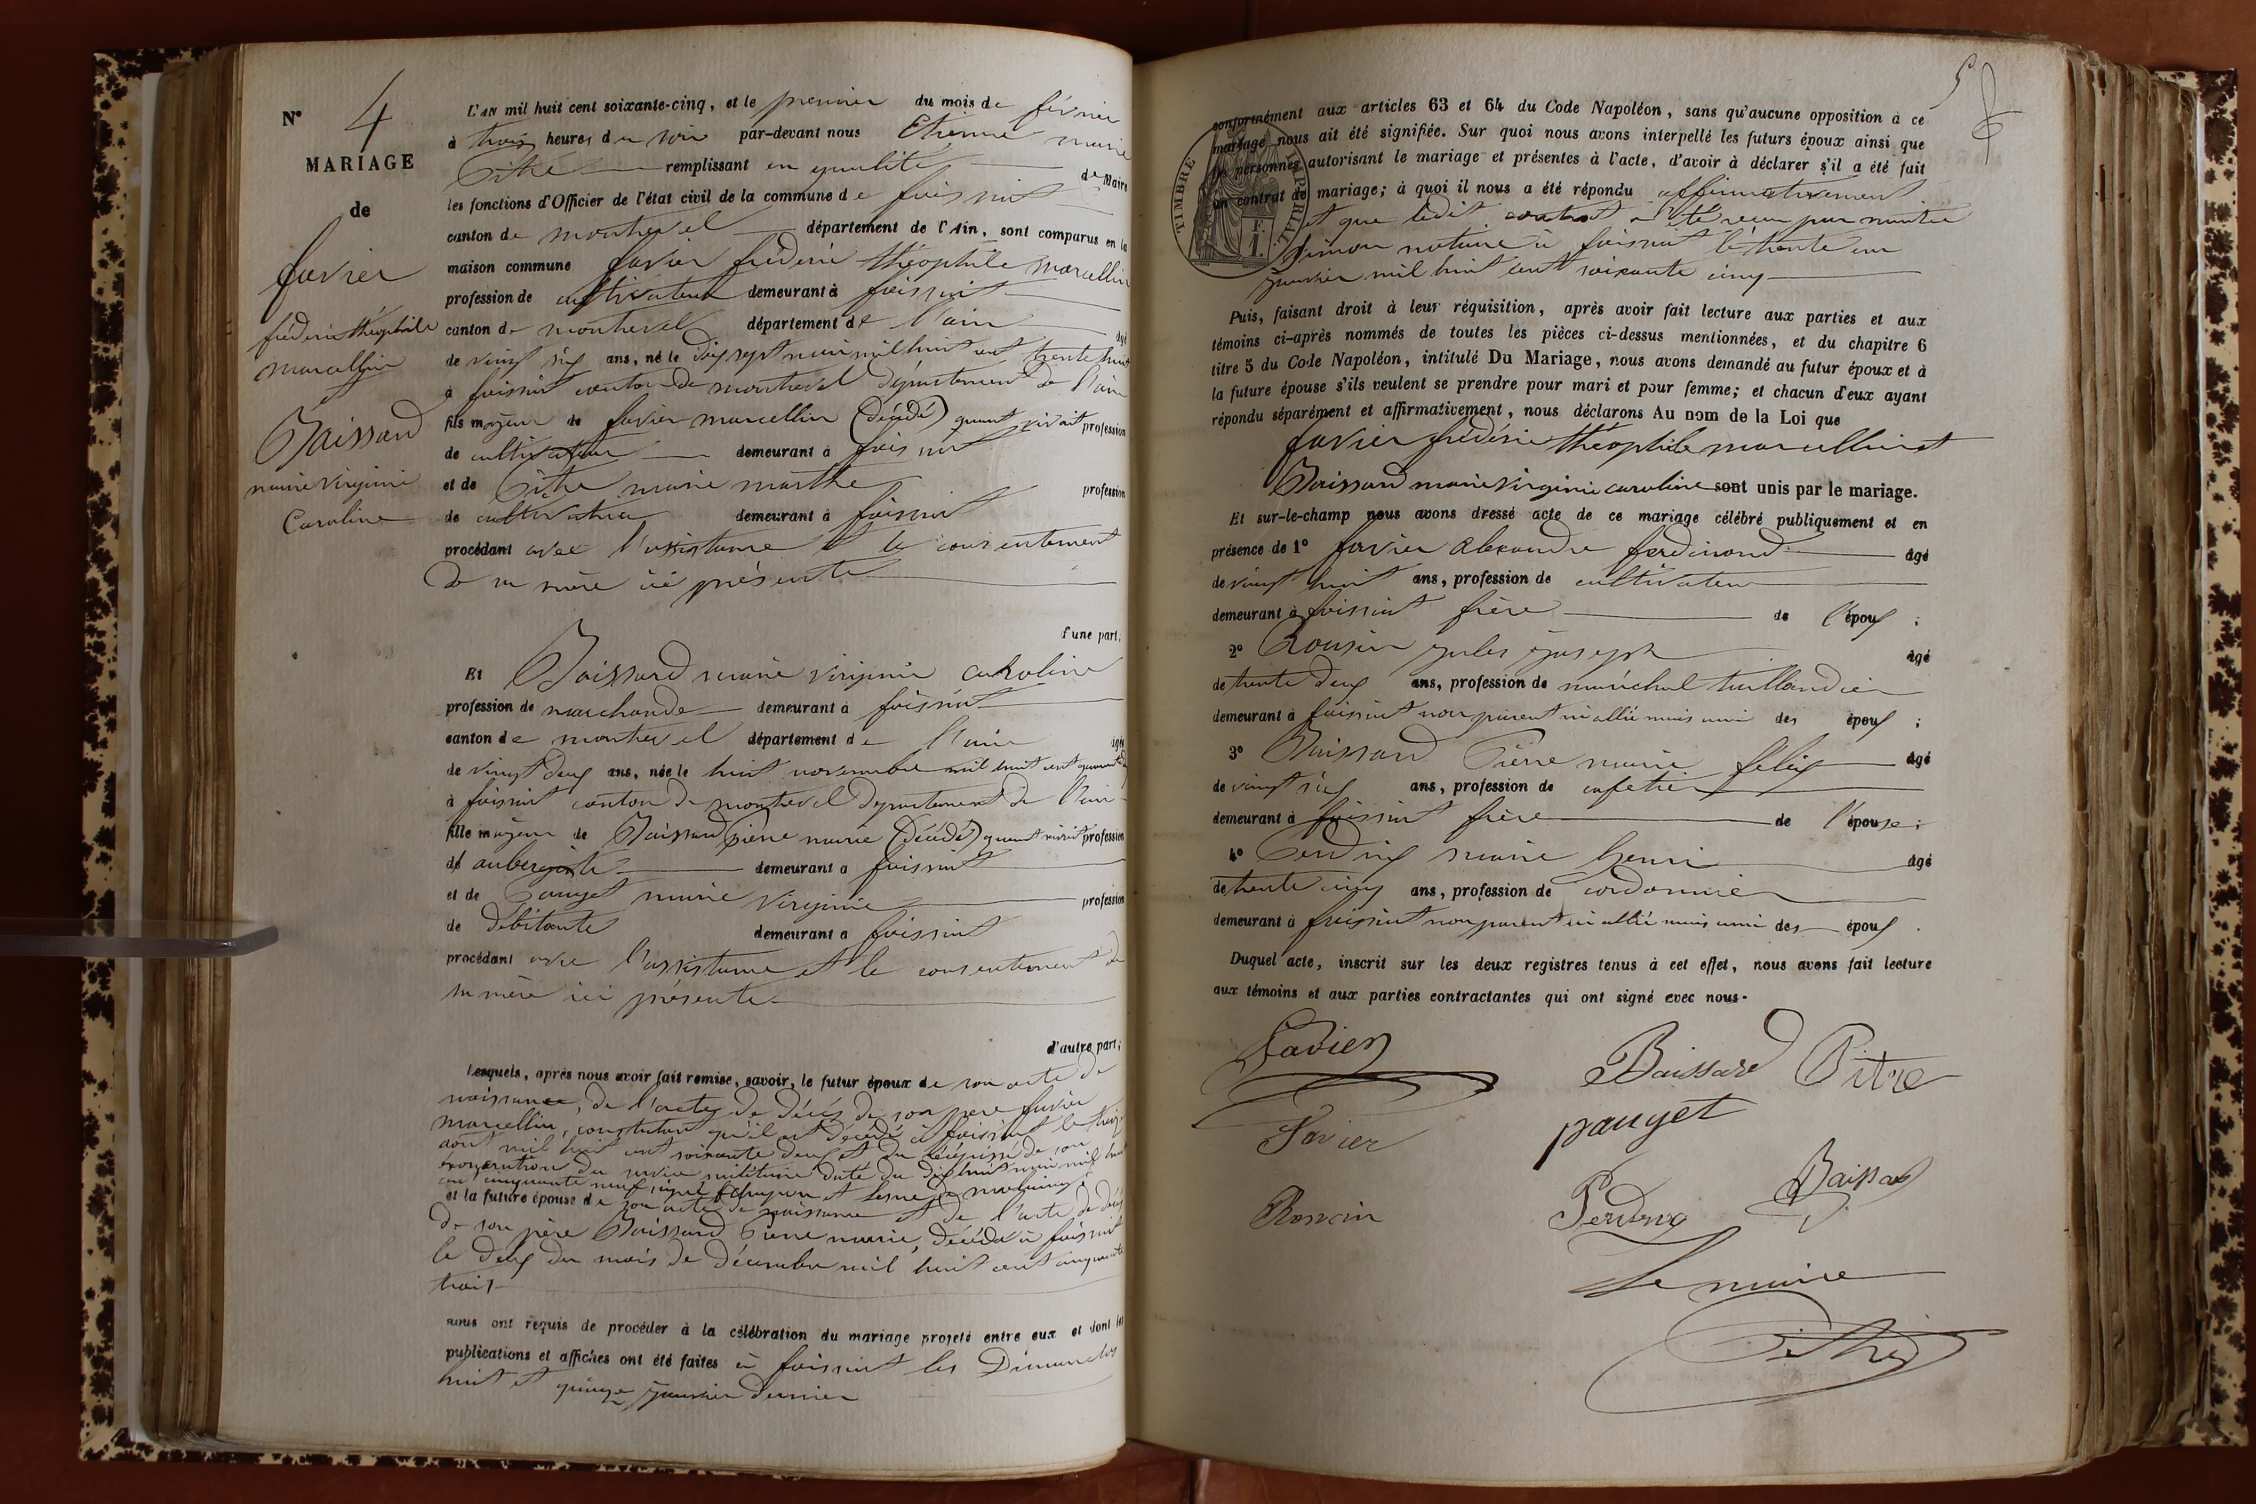 N° 4
MARIAGE
de
favier
fréderic théophile
marcellin
et
Baissard
marie virginie
Caroline
L'AN mil huit cent soixante-cinq, et le premier du mois de février
à trois heures du soir par-devant nous Etienne marie
Pitre remplissant en qualité de Maire
les fonctions d'Officier de l'état civil de la commune de foissiat
canton de montrevel département de l'Ain, sont comparus en la
maison commune favier fréderic théophile marcellin
profession de cultivateur demeurant à foissiat
canton de montrevel département de l'ain âgé
de vingt six ans, né le dix sept mai mil huit cent trente huit
à foissiat canton de montrevel département de l'ain
fils majeur de favier marcellin (décédé) quant vivait profession
de cultivateur demeurant à foissiat
et de Pitre marie marthe profession
de cultivatrice demeurant à foissiat
procédant avec l'assistance et le consentement
de sa mère ici présente
d'une part;
Et Baissard marie virginie caroline
profession de marchande demeurant à foissiat
canton de montrevel département de l'ain âgée
de vingt deux ans, née le huit novembre mil huit cent quarante deux
à foissiat canton de montrevel département de l'ain
fille majeure de Baissard Pierre marie (décédé) quant vivait profession
de aubergiste demeurant à foissiat
et de Pauget marie virginie profession
de débitante demeurant à foissiat
procédant avec l'assistance et le consentement de
sa mère ici présente
d'autre part;
Lesquels, après nous avoir fait remise, savoir, le futur époux de son acte de
naissance, de l'acte de décès de son père favier
marcellin, constatant qu'il est décédé à foissiat le
aout mil huit cent soixante deux et du récépissé de son
exonération du service militaire daté du dix huit mai mil huit
cent cinquante neuf signé
et la future épouse de son acte de naissance et de l'acte de décès
de son père Baissard Pierre marie, décédé à foissiat
le deux du mois de décembre mil huit cent cinquante
trois
nous ont requis de procéder à la célébration du mariage projeté entre eux et dont les
publications et affiches ont été faites à foissiat les Dimanches
huit et quinze janvier dernier
5
TIMBRE IMPÉRIAL
F.
1.
conformément aux articles 63 et 64 du Code Napoléon, sans qu'aucune opposition à ce
mariage nous ait été signifiée. Sur quoi nous avons interpellé les futurs époux ainsi que
les personnes autorisant le mariage et présentes à l'acte, d'avoir à déclarer s'il a été fait
un contrat de mariage; à quoi il nous a été répondu affirmativement
et que ledit contrat a été reçu par maitre
Simon notaire à foissiat le trente un
janvier mil huit cent soixante cinq
Puis, faisant droit à leur réquisition, après avoir fait lecture aux parties et aux
témoins ci-après nommés de toutes les pièces ci-dessus mentionnées, et du chapitre 6
titre 5 du Code Napoléon, intitulé Du Mariage, nous avons demandé au futur époux et à
la future épouse s'ils veulent se prendre pour mari et pour femme; et chacun d'eux ayant
répondu séparément et affirmativement, nous déclarons Au nom de la Loi que
favier frédéric théophile marcellin et
Baissard marie virginie caroline sont unis par le mariage.
Et sur-le-champ nous avons dressé acte de ce mariage célébré publiquement et en
présence de 1° favier alexandre ferdinand âgé
de vingt huit ans, profession de cultivateur
demeurant à foissiat frère de l'époux;
2° Ronsin jules joseph âgé
de trente deux ans, profession de maréchal taillandier
demeurant à foissiat non parent ni allié mais ami des époux;
3° Baissard Pierre marie félix âgé
de vingt six ans, profession de cafetier
demeurant à foissiat frère de l'épouse;
4° Perdrix marie henri âgé
de trente cinq ans, profession de cordonnier
demeurant à foissiat non parent ni allié mais ami des époux.
Duquel acte, inscrit sur les deux registres tenus à cet effet, nous avons fait lecture
aux témoins et aux parties contractantes qui ont signé avec nous.
Favier Baissard Pitre
pauget
Favier
Baissard
Ronsin Perdrix
Le maire
Pitre